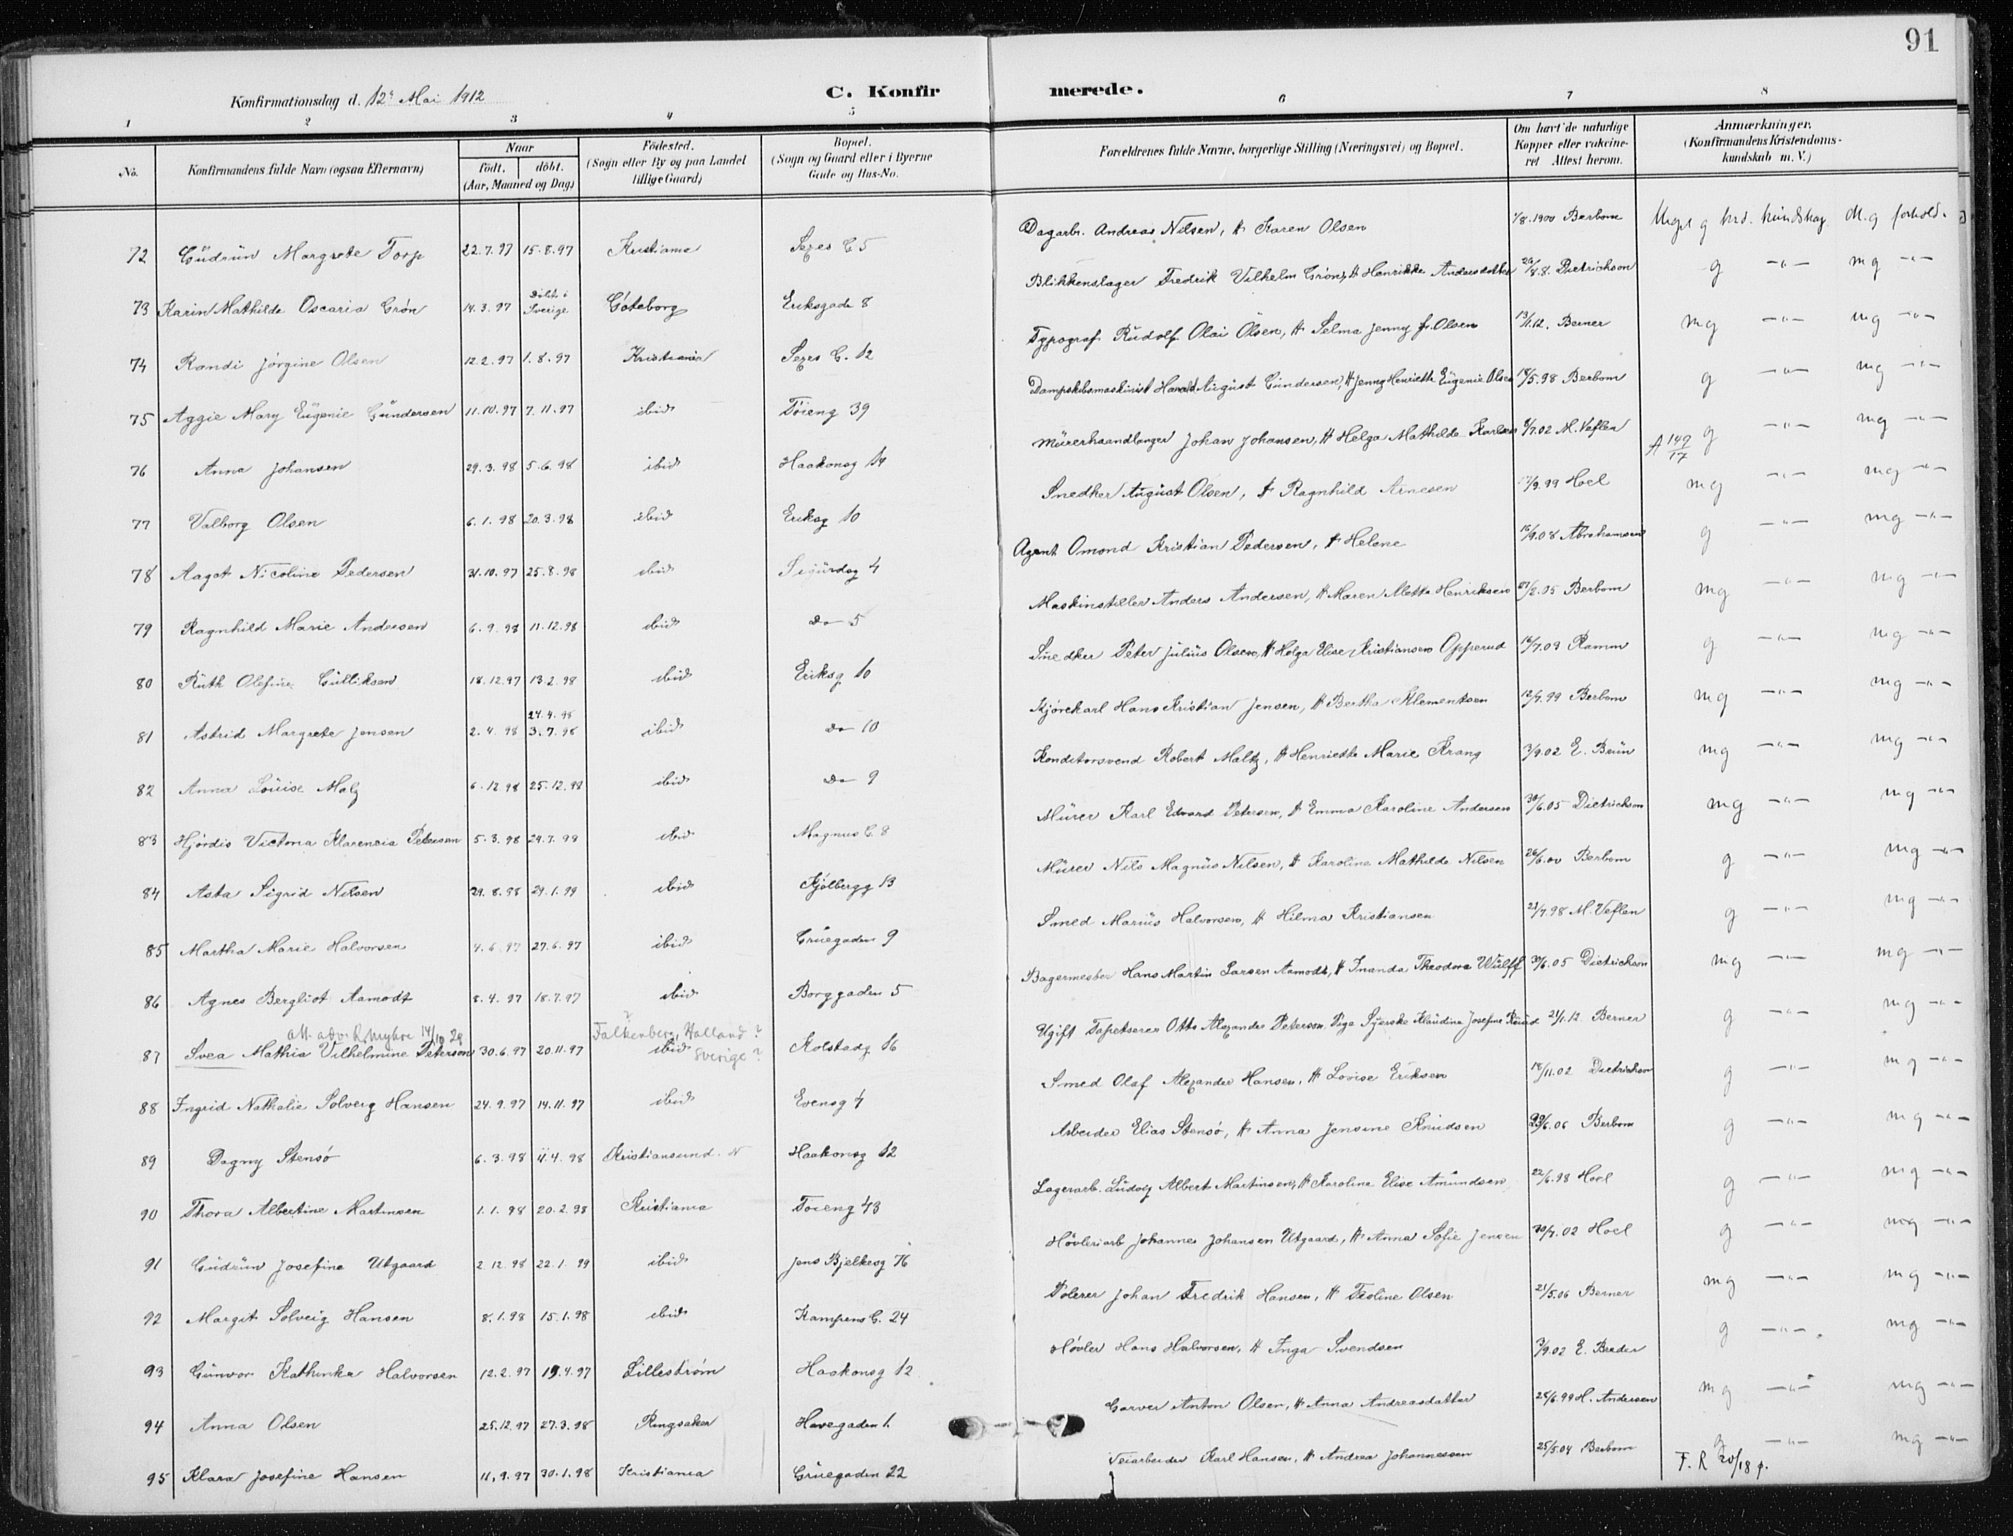 91
Konfirmationsdag d. 12' Mai 1912
C. Konfirmerede.
1 2 3 4 5 6 7 8
No. Konfirmandens fulde Navn (ogsaa Efternavn) Naar født. døbt. (Aar, Maaned og Dag) Fødested. (Sogn eller By og paa Landet tillige Gaard) Bopæl. (Sogn og Gaard eller i Byerne Gade og Hus-No. Forældrenes fulde Navne, borgerlige Stilling (Næringsvei) og Bopæl. Om havt de naturlige Kopper eller vakcineret Attest herom. Anmærkninger. (Konfirmandens Kristendomskundskab m. V.)
72 Gudrun Margrete Torp 22.7.97 15.8.97 Kristiania Sexes G 5 Dagarb. Andreas Nilsen, H Karen Olsen 1/8.1900 Berbom Meget g krd. kundskap M. g forhold.
73 Karin Mathilde Oscaria Grøn 14.3.97 Døbt i Sverige Gøteborg Eriksgade 8 Blikkenslager Fredrik Vilhelm Grøn, H Henrikke Andersdatter Dietrichson g -"- mg -"-
74 Randi Jørgine Olsen 12.2.97 1.8.97 Kristiania Sexes G. 12 Typograf Rudolf Olai Olsen, H Selma Jenny f. Olsen 13/1.12. Berner mg -"- mg -"-
75 Aggie Mary Eugenie Gundersen 11.10.97 7.11.97 ibid Tøieng 39 Dampskibsmaskinist Harald August Gundersen, H Jenny Henriette Eugenie Olsen 18/5.98 Berbom g -"- mg -"-
76 Anna Johansen 29.3.98 5.6.98 ibid Haakonsg 14 Murerhaandlanger Johan Johansen, H Helga Mathilde Karlsen 8/7.02 M. Veflen A 149/17 g -"- mg -"-
77 Valborg Olsen 6.1.98 20.3.98 ibid Eriksg 10 Snedker August Olsen, H Ragnhild Arnesen /9.99 Hoel mg -"- mg -"-
78 Aagot Nicoline Pedersen 31.10.97 25.8.98 ibid Sigurdsg 4 Agent Omond Kristian Pedersen, H Helene 16/9.08 Abrahamsen g -"- mg -"-
79 Ragnhild Marie Andersen 6.9.98 11.12.98 ibid do 5 Maskinstiller Anders Andersen, H Maren Mette Henriksen 27/2.05 Berbom mg -"- mg -"-
80 Ruth Olefine Gulliksen 18.12.97 13.2.98 ibid Eriksg 10 Snedker Peter Julius Olsen, H Helga Elise Kristiansen Opperud 16/7.09 Ramm g -"- mg -"-
81 Astrid Margrete Jensen 2.4.98 24.4.98 3.7.98 ibid do 10 Kjørekarl Hans Kristian Jensen, H Bertha Klementsen 12/9.99 Berbom mg -"- mg -"-
82 Anna Louise Malz 6.12.98 25.12.98 ibid do 9 Konditorsvend Robert Maltz, H Henriette Marie Krang 3/9.02 E. Beün mg -"- mg -"-
83 Hjørdis Victoria Klarencia Petersen 5.3.98 24.7.99 ibid Magnus G. 8 Murer Karl Edvard Petersen, H Emma Karoline Andersen 30/6.05 Dietrichson mg -"- mg -"-
84 Asta Sigrid Nilsen 29.8.98 24.1.99 ibid Kjølbergg 13 Murer Nils Magnus Nilsen, H Karoline Mathilde Nilsen 26/6.00 Berbom g -"- mg -"-
85 Martha Marie Halvorsen 4.6.97 27.6.97 ibid Gruegaden 9 Smed Marius Halvorsen, H Hilma Kristiansen 23/7.98 M. Veflen g -"- mg -"-
86 Agnes Bergliot Aamodt 8.4.97 18.7.97 ibid Borggaden 5 Bagermester Hans Martin Larsen Aamodt, H Inanda Theodora Wulff 30/6.05 Dietrichson mg -"- mg -"-
att. adv. R. Myhre 14/10 29 Falkenberg, Halland? Sverige?
87 Svea Mathia Vilhelmine Peterson 30.6.97 20.11.97 ibid Rolstadg 16 Ugift Tapetserer Otto Alexander Peterson. Pige Syerske Klaudine Josefine 21/1.12 Berner g -"- mg -"-
88 Ingrid Nathalie Solveig Hansen 24.9.97 14.11.97 ibid Evensg 4 Smed Olaf Alexander Hansen, H Lovise Eriksen 18/11.02 Dietrichson g -"- mg -"-
89 Dagny Stensø 6.3.98 11.4.98 Kristiansund. N Haakonsg 12 Arbeider Elias Stensø, H Anna Jensine Knudsen 29/6.06 Berbom g -"- mg -"-
90 Thora Albertine Martinsen 1.1.98 20.2.98 Kristiania Tøieng 43 Lagerarb. Ludvig Albert Martinsen, H Karoline Elise Amundsen 22/6.98 Hoel g -"- mg -"-
91 Gudrun Josefine Utgaard 2.12.98 22.1.99 ibid Jens Bjelkesg 76 Høvleriarb Johannes Johansen Utgaard, H Anna Sofie Jensen 30/7.02 Hoel g -"- mg -"-
92 Margit Solveig Hansen 8.1.98 15.1.98 ibid Kampens G. 24 Polerer Johan Fredrik Hansen, H Teoline Olsen 21/5.06 Berner mg -"- mg -"-
93 Gunvor Kathinka Halvorsen 12.2.97 19.4.97 Lillestrøm Haakonsg 12 Høvler Hans Halvorsen, H Inga Svendsen 3/9.02 E. g -"- mg -"-
94 Anna Olsen 25.12.97 27.3.98 Ringsaker Havegaden 1. Garver Anton Olsen, H Anna Andreasdatter 28/6.99 H. Andersen mg -"- mg -"-
95 Klara Josefine Hansen 11.9.97 30.1.98 Kristiania Gruegaden 22 Veiarbeider Karl Hansen, H Andrea Johannessen 25/5.04 Berbom g -"- mg -"-
F. R 20/18 p.